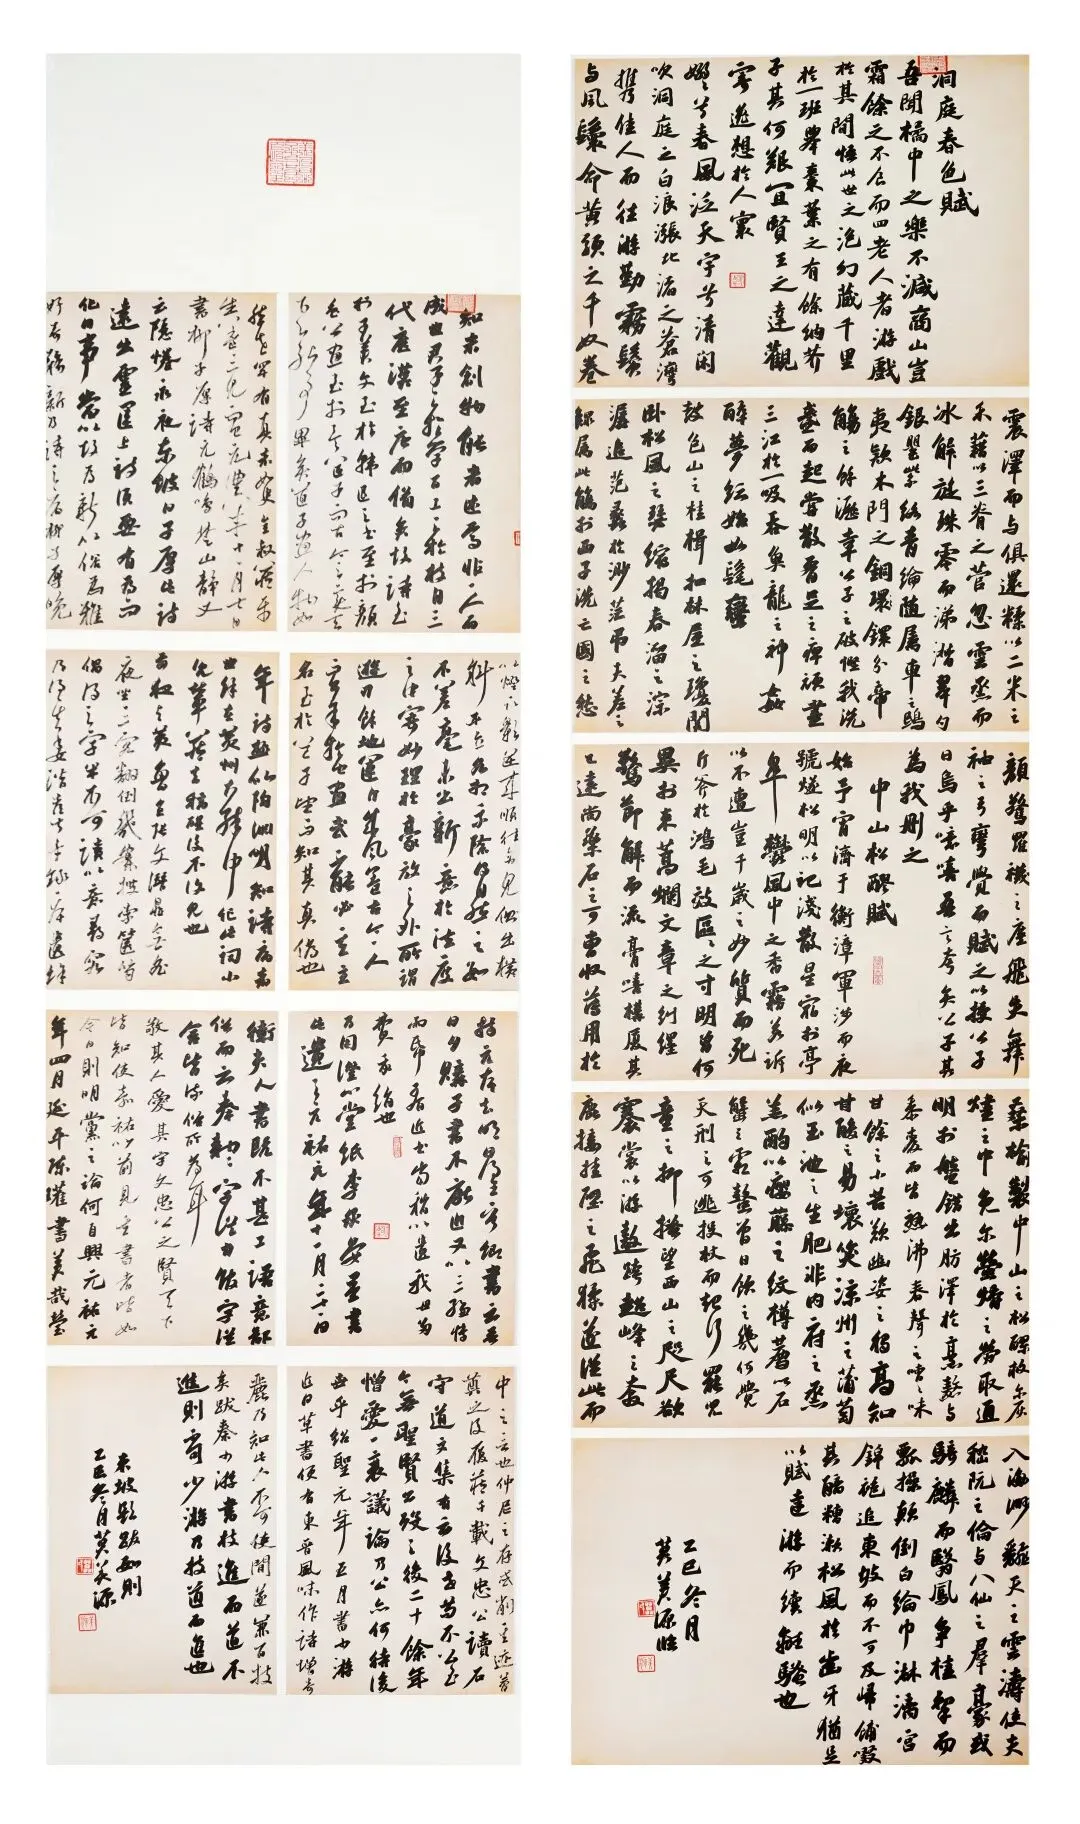 洞庭春色賦
吾聞橘中之樂不減商山豈
霜餘之不食而四老人者游戲
於其間悟此世之泡幻藏千里
於一班舉棗葉之有餘納芥
子其何艱宜賢王之達觀
寄遐想於人寰
嫋々兮春風泛天宇兮清閑
吹洞庭之白浪漲北渚之蒼灣
攜佳人而往游勤霧鬢
与風鬟命黃頭之千奴卷
震澤而与俱還糅以二米之
禾藉以三脊之菅忽雲烝而
冰解旋珠零而涕潸翠勺
銀罌紫絡青綸隨屬車之鴟
夷欵木門之銅鐶分帝
觴之餘瀝幸公子之破慳我洗
盞而起嘗散腰足之痺頑盡
三江於一吸吞魚龍之神姦
醉夢紜始如髦蠻
鼓包山之桂楫扣林屋之瓊關
臥松風之瑟縮揭春溜之淙
潺追范蠡於渺茫吊夫差之
鰥屬此觴於西子洗亡國之愁
顏驚羅襪之塵飛失舞
袖之弓彎覺而賦之以授公子
曰烏乎噫嘻吾言夸矣公子其
為我刪之
中山松醪賦
始予宵濟于衡漳軍涉而夜
號燧松明以記淺散星宿於亭
皋鬱風中之香霧若訴
以不遭豈千歲之妙質而死
斤斧於鴻毛效區々之寸明曾何
異於束蒿爛文章之糾纆
驚節解而流膏嘻構廈其
已遠尚藥石之可曹收薄用於
桑榆製中山之松醪救爾灰
燼之中免爾螢爝之勞取通
明於盤錯出肪澤於烹熬与
黍麥而皆熟沸春聲之嘈々味
甘餘之小苦歎幽姿之獨高知
甘酸之易壞笑涼州之蒲萄
似玉池之生肥非內府之烝
羔酌以癭藤之紋樽薦以石
蟹之霜螯曾日飲之幾何覺
天刑之可逃投杖而起行罷兒
童之抑搔望西山之咫尺欲
褰裳以游遨跨超峰之奔
鹿接挂壁之飛猱遂從此而
入海渺翻天之雲濤使夫
嵇阮之倫与八仙之羣豪或
騎麟而翳鳳爭榼挈而
瓢操顛倒白綸巾淋漓宮
錦袍追東坡而不可及歸餔歠
其醨糟漱松風於齒牙猶足
以賦遠游而續離騷也
乙巳冬月
黃美源臨
知者創物能者述焉非一人而
成也君子之於學百工之於技自三
代歷漢至唐而備矣故詩至
於子美文至於韓退之書至於顏
魯公畫至於吳道子而古今之變天
下之能事畢矣道子畫人物如
以燈取影逆來順往旁見側出橫
斜平直各相乘除得自然之數
不差毫末出新意於法度
之中寄妙理於豪放之外所謂
遊刃餘地運斤成風蓋古今一人
而已余於他畫或不能必其主
名至於道子望而知其真偽也
然世罕有真者如史全叔所藏平
生蓋一二見而已元豐八年十一月七日
書柳子厚詩元鶴鳴楚山靜又
云隱憂倦永夜東坡曰子厚此詩
遠出靈運上詩須要有為而
作用事當以故為新以俗為雅
好奇務新乃詩之病柳子厚晚
年詩極似陶淵明知詩病者
也
日夕賺予書不厭近又以三縑博
兩紙吾近書當稍以遺我毋為
費我縑也
乃用澄心堂紙李承晏墨書
此遺之元祐元年十一月二十一日
衛夫人書既不甚工語意鄙
俗而云奉勅々字從力館字從
舍皆流俗所為耳
敬其人愛其字文忠公之賢天下
皆知使嘉祐以前見其書者皆如
今日則明黨之論何自興元祐元
年四月延平陳瓘書美哉瑩
守道文集有云後世苟不公至
今無聖賢公歿之後二十餘年
憎愛一衰議論乃公亦何待後
世乎紹聖元年五月書少游
近日草書便有東晉風味作詩增奇
麗乃知此人不可使閒遂兼百技
矣跋秦少游書技進而道不
進則不可少游乃技道兩進也
東坡題跋數則
乙巳冬月黃美源